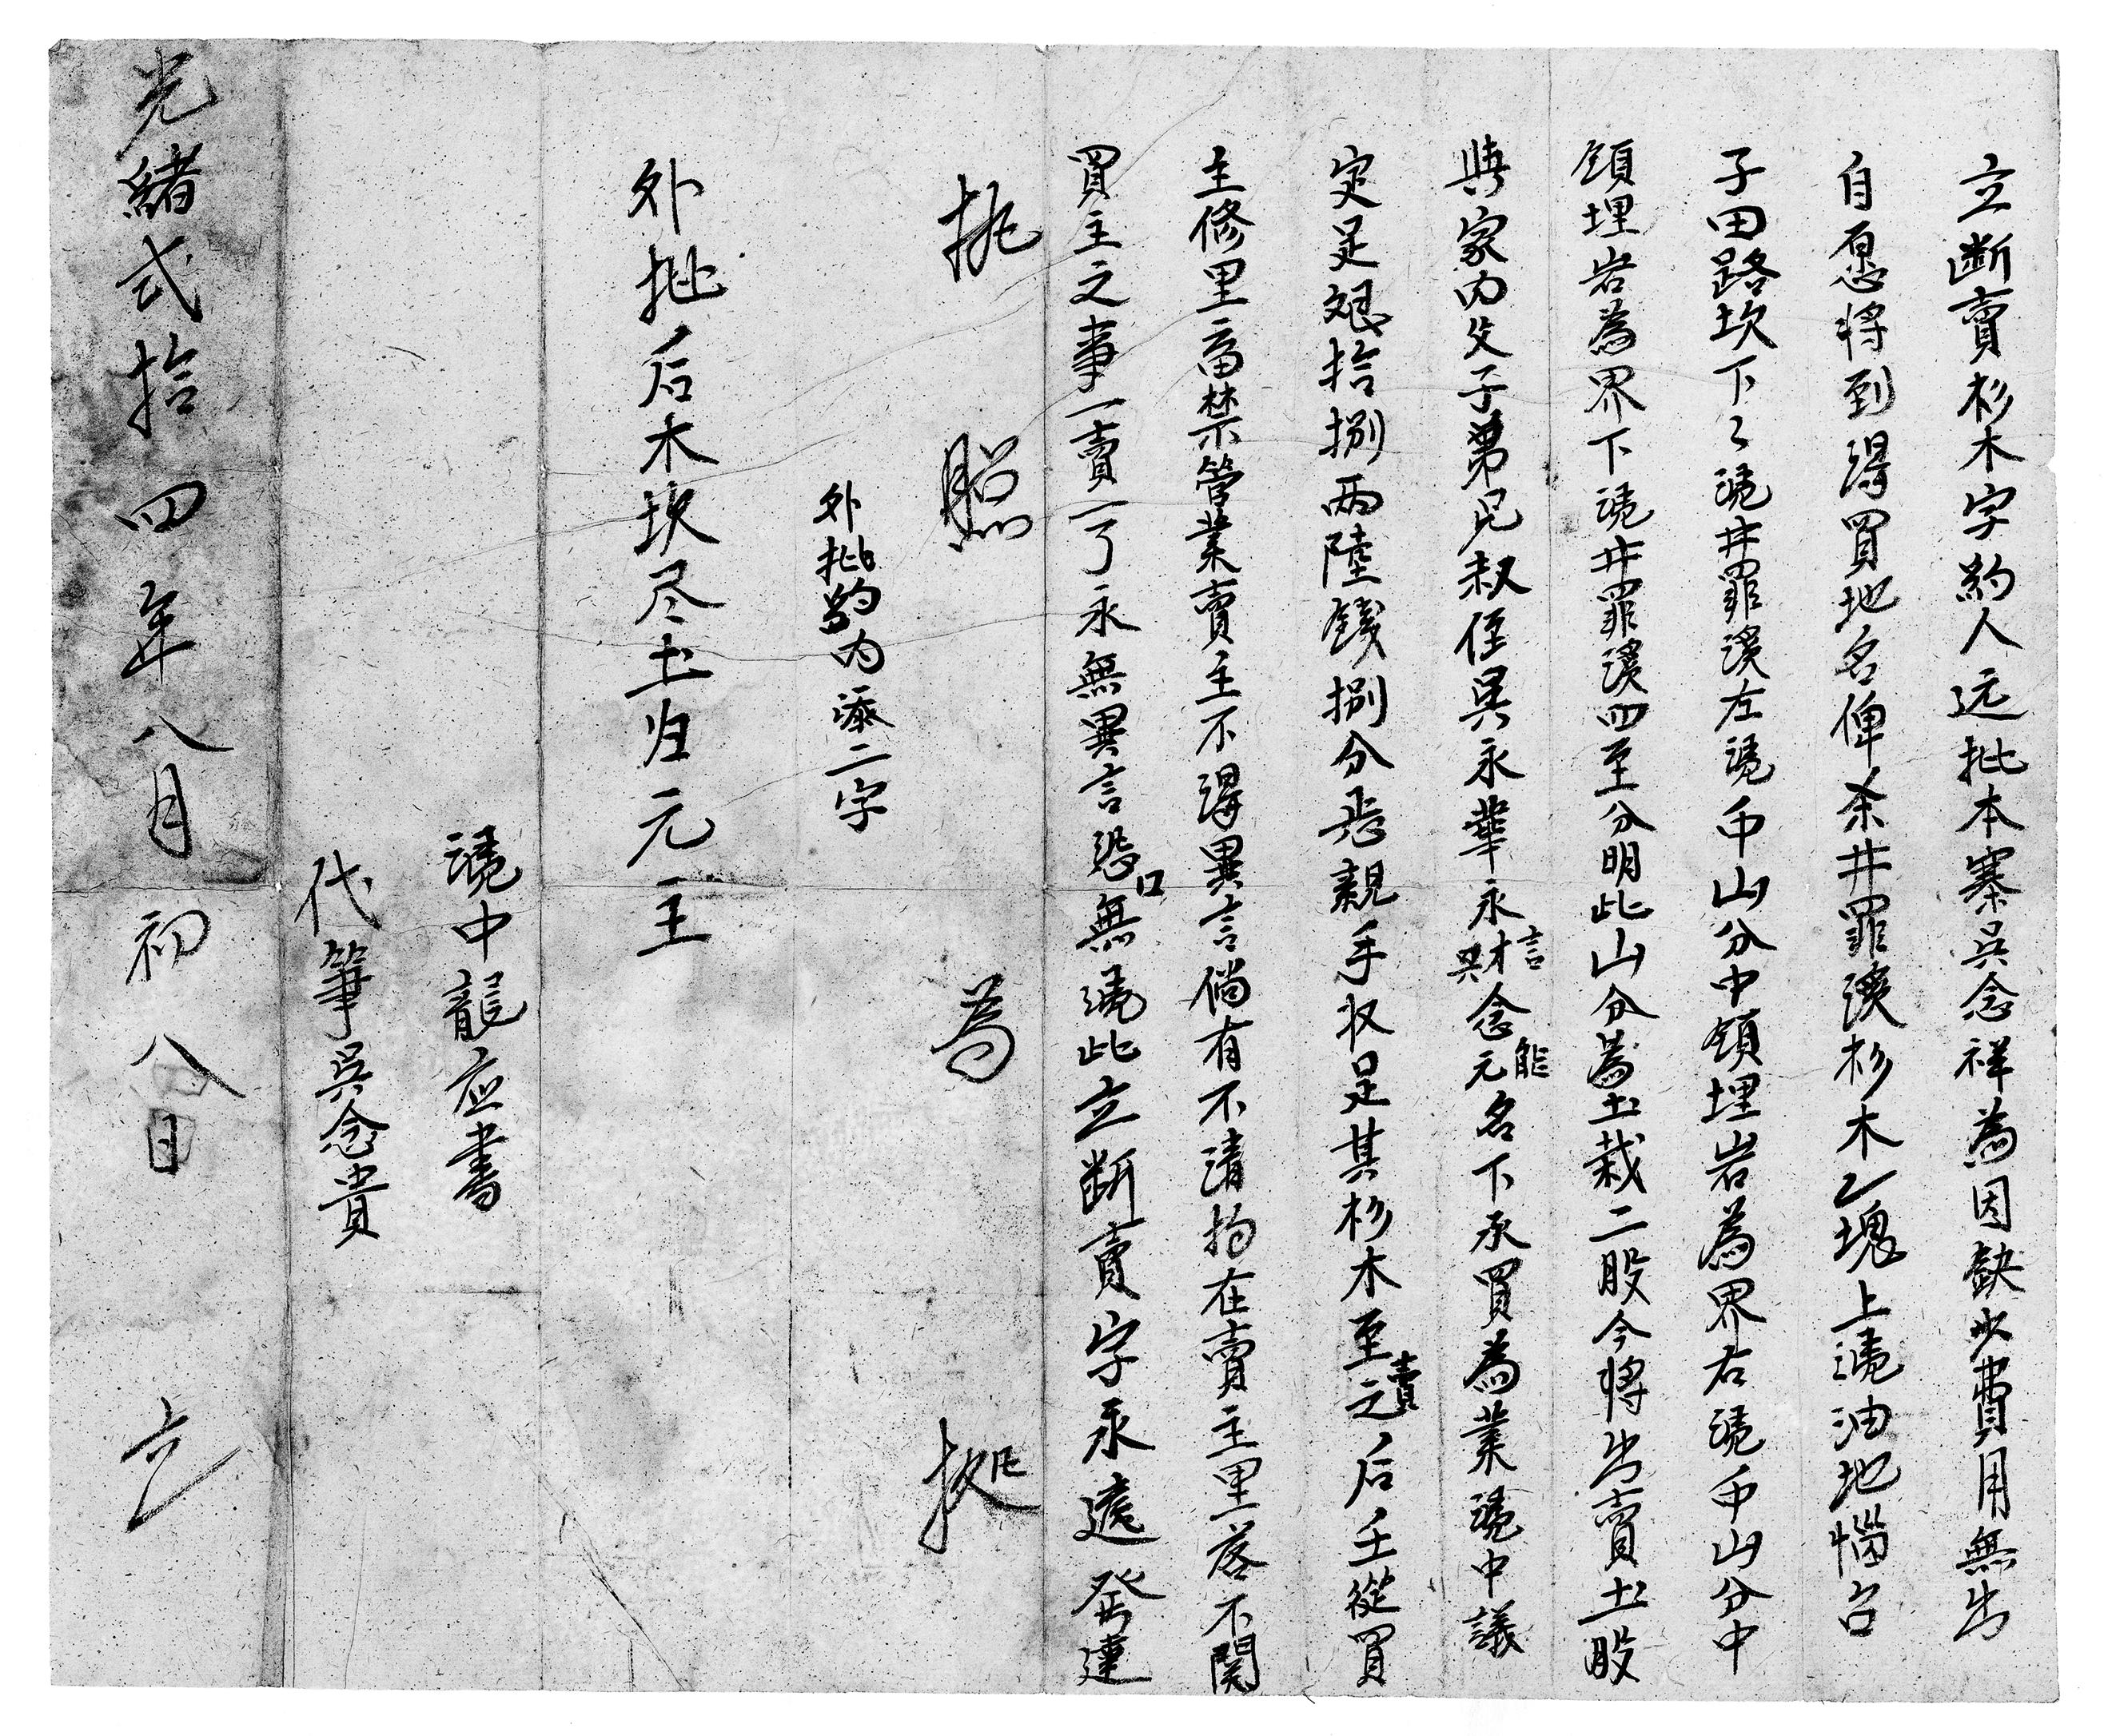 立断賣杉木字約人远批本寨吳念祥為因缺少費用無出
自愿将到得買地名俾杀井罪溪杉木乙塊上凴油地惱召
子田路坎下々凴井罪溪左凴巾山分中領埋岩為界右凴巾山分中
領埋岩為界下凴井罪溪四至分明此山分為土栽二股今将出賣土股
與家内父子弟兄叔侄吳永華永財吳言念元能名下承買為業凴中議
定足銀拾捌两陸錢捌分悉親手收足其杉木至賣之后壬從買
主修里畜禁管業賣主不得異言倘有不清拘在賣主里落不関
買主之事一賣一了永無異言恐口無凴此立断賣字永遠發達
批照為挋
外批約内添二字
外批后木砍尽土归元主
凴中龍应書
代筆吳念貴
光緒弍拾四年八月初八日立